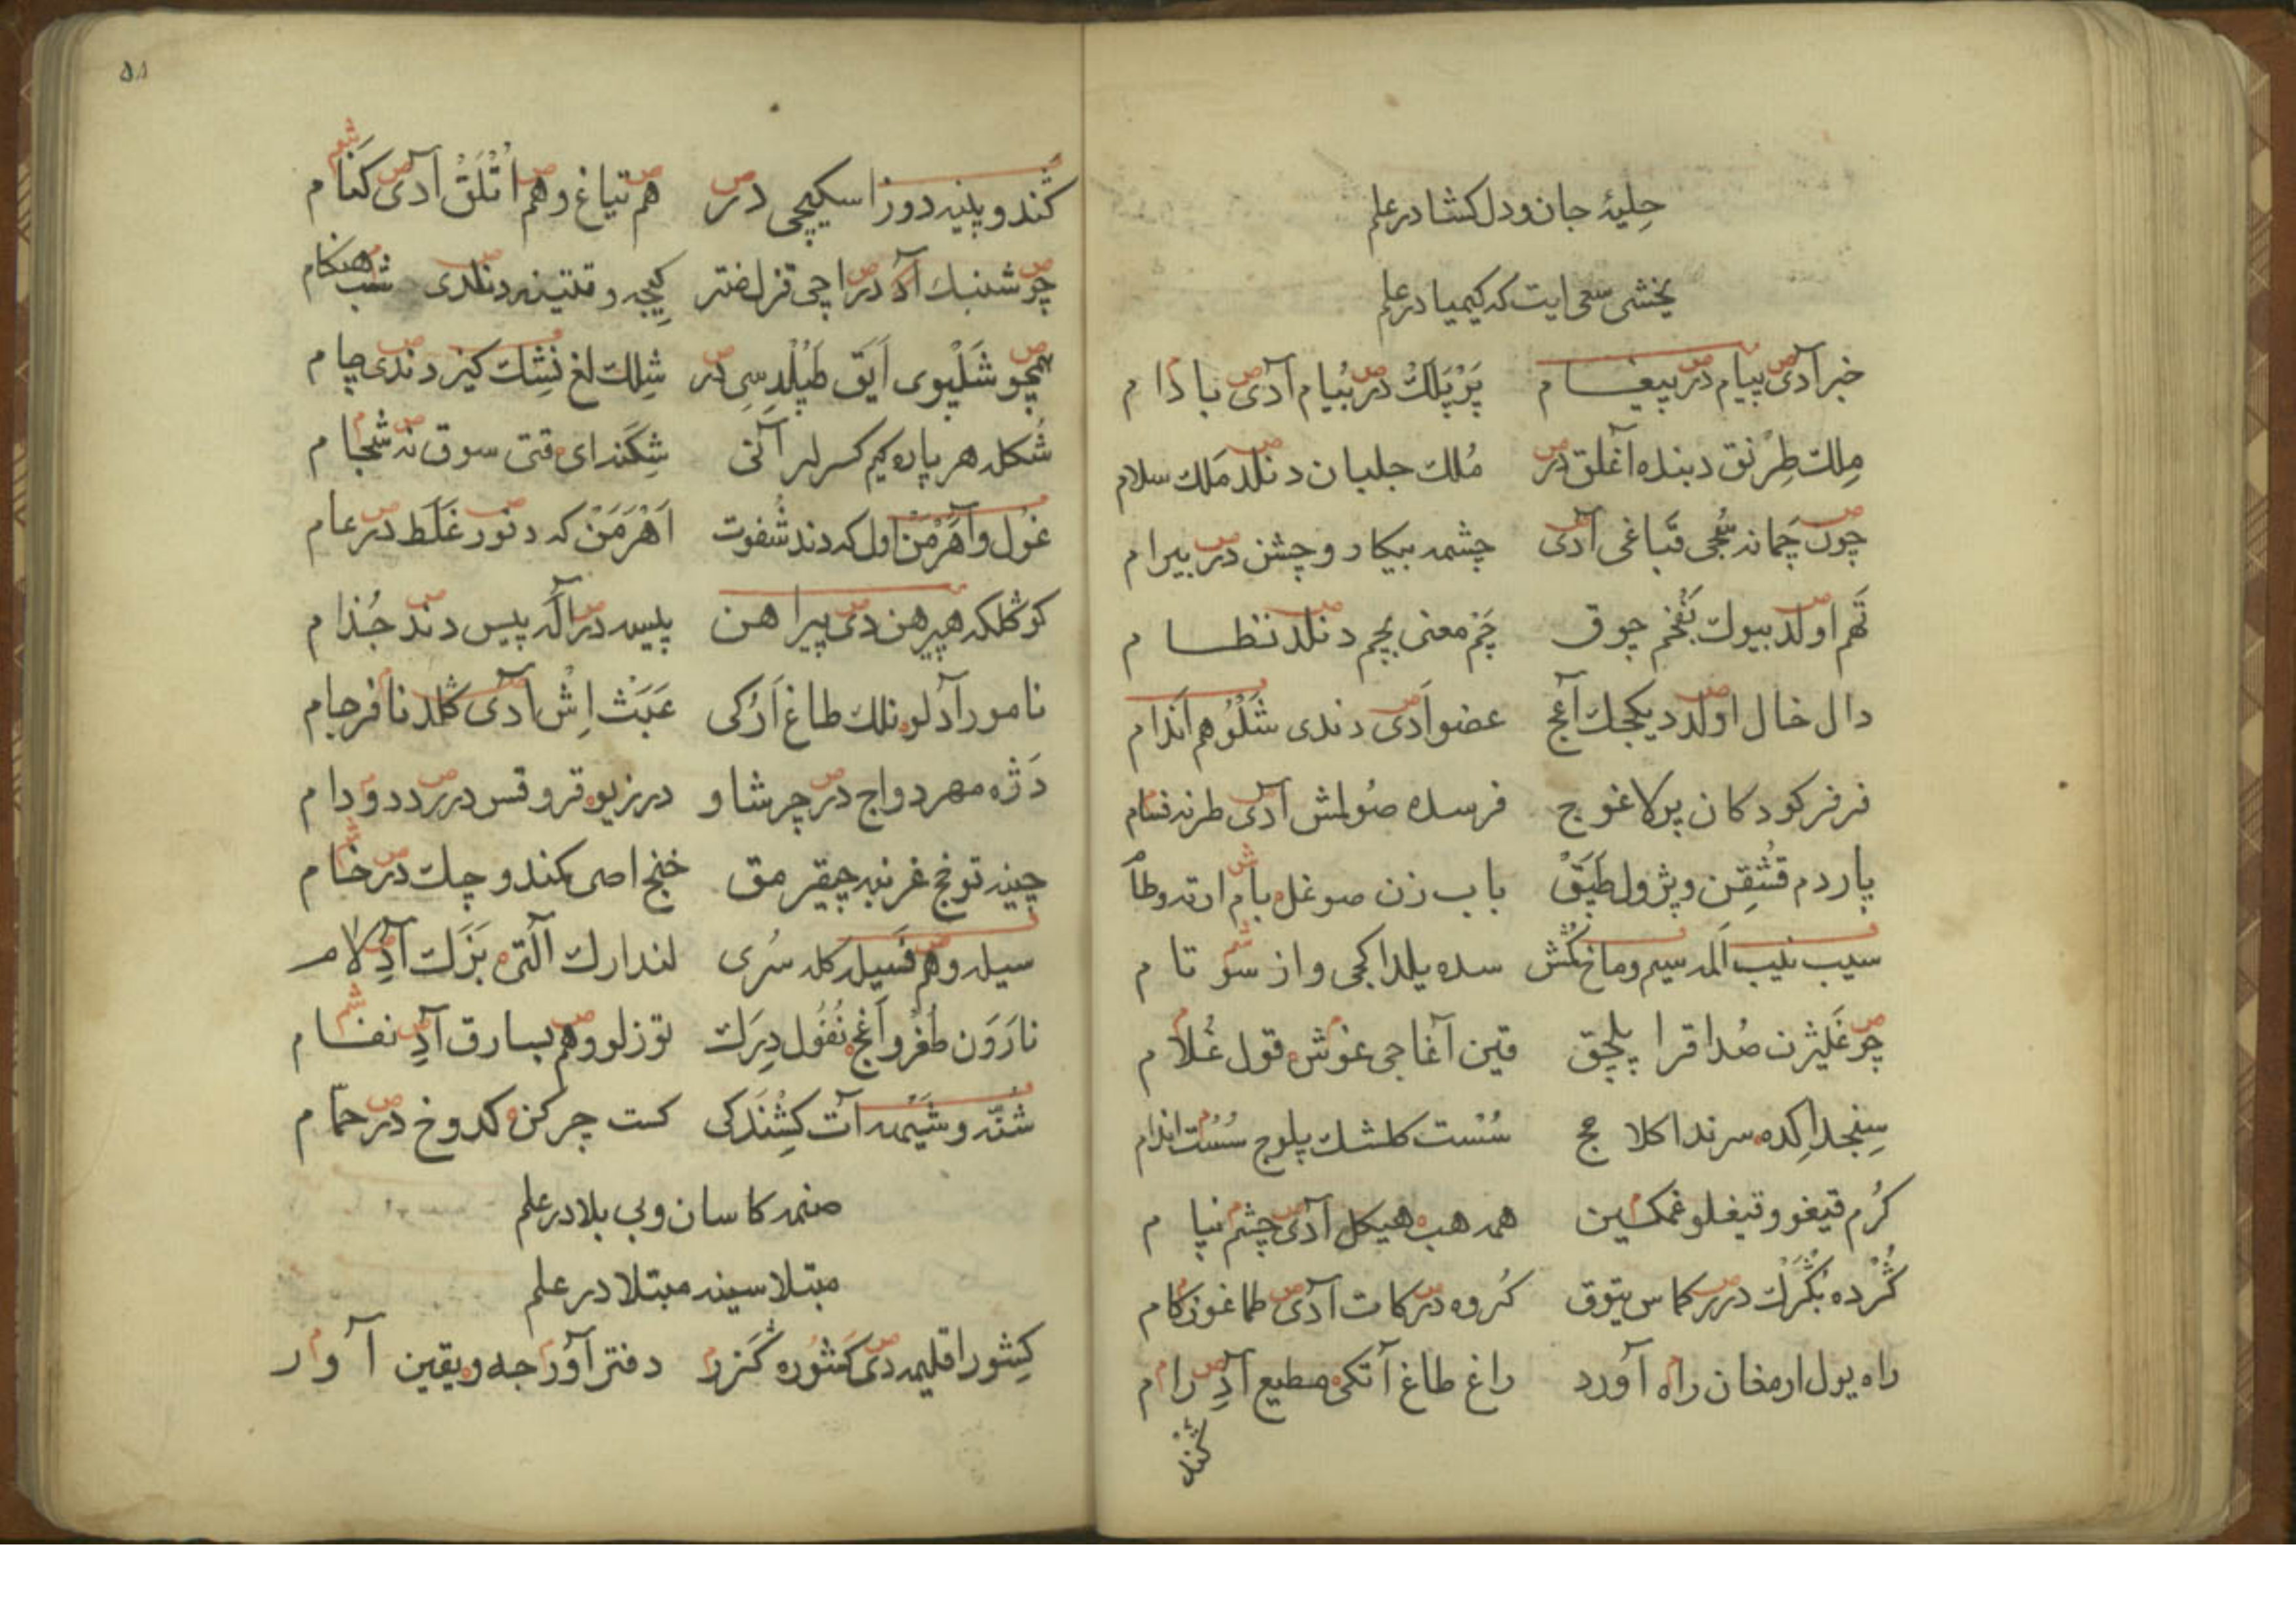 حِلیۀ جان ودل کشا در علم
یخشی سعی ایت که کیمیا در علم
خبر آدی پیام در پیغام پَرْپَلَكْ در بُیام آدی بادام
مِلك طِرْنق دبنده آغلق در مُلك جلبان دنلد مَلك سلام
چون چَمانه سُجی قَباغی آدی چشمه بیکار وچشن در بیرام
تَهم اولد بیوك چوق چَم معنی بچم دنلد نظام
دال خال اولد دیکجك آغج عضو آدی دندی شَلْوُهم اَندام
فرفرکو دکان پرکاغوج فرسده صُولمش آدی طرنه فنام
پاردم قُشقِن وپژول طَپَقْ باب زن صوغل بام ارته وطا
سیب نیب اَلمه سیم وماخ سده یلداکجی واز سو تام
چو غَلیژن صُدا قرا پلچق قین آغاجی غوش قول غُلام
سِنجد اکده سرنداکلا مج سُست کلشك پلوج سُست اندام
کرُم قیغو وقیغلو غمکین همه هب هیکل آدی چشم نیام
کُرده بُکْرك در کاس یتوق کُروه در کات آدی طماغ وزکام
راه یول ارمغان راه آورد راغ طاغ آتکی مطیع آدِ رام
کُند
۵۸
کُند وپنیه دوز اسکیجی در هم تیاغ وهم اُتْلَقْ آدی کَنام
چو شبنبك آد دراچی قزل کیجه وقتینه دنلدی شب هنکام
همچو شَلْپوی اَیَق طَپِلْدِسِی در شِلك لغ نشِك کیز دندی چام
شُکله هر پاره کیم کسرلر آنی شِکَند ای قتی سوق نه شجام
غوُل وآهَرْمَنْ اول که دند شُفوت اَهْرَمَنْ که دنور غَلَط در عام
کوکلکه هپیرهن دی پیراهن پلیسه در آلَه پیس دند جُذام
نامور آدلو نلك طاغ اَرُکی عَبَث اِش آدی کلد نافرجام
دَژه مهر دواج در چرشاو درزیوه قروقس در ددودام
چینه توفج غرنبه چیقرمق خنج اصی کمند وچك در خام
سیله وهم فَسیله کله سُری لندارك آلتی بَزَك آدِ لام
نارَوَن طُغْر وآغج نُغُول دِرَك توزلو وهم بسارق آدِ نفام
شُنّه وشَیْهه آت کِشْنَه کی کست چرکن کدوخ در حمّام
صنمه کاسان وبی بلا در علم
مبتلاسینه مبتلا در علم
کِشور اقلیمه دی کَشوُره کَرز دفتر آورجه ویقین آوار